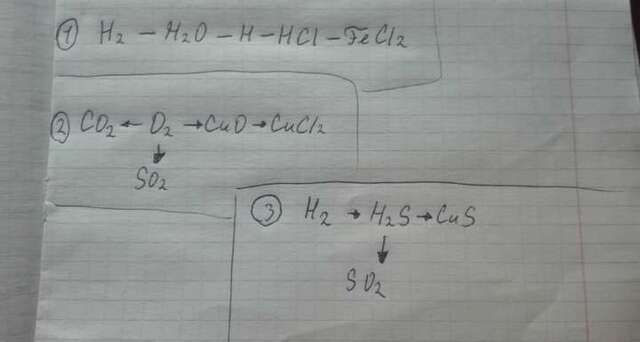 ① H₂ – H₂O – H – HCl – FeCl₂
② CO₂ ← O₂ → CuO → CuCl₂
↓
SO₂
③ H₂ → H₂S → CuS
↓
SO₂